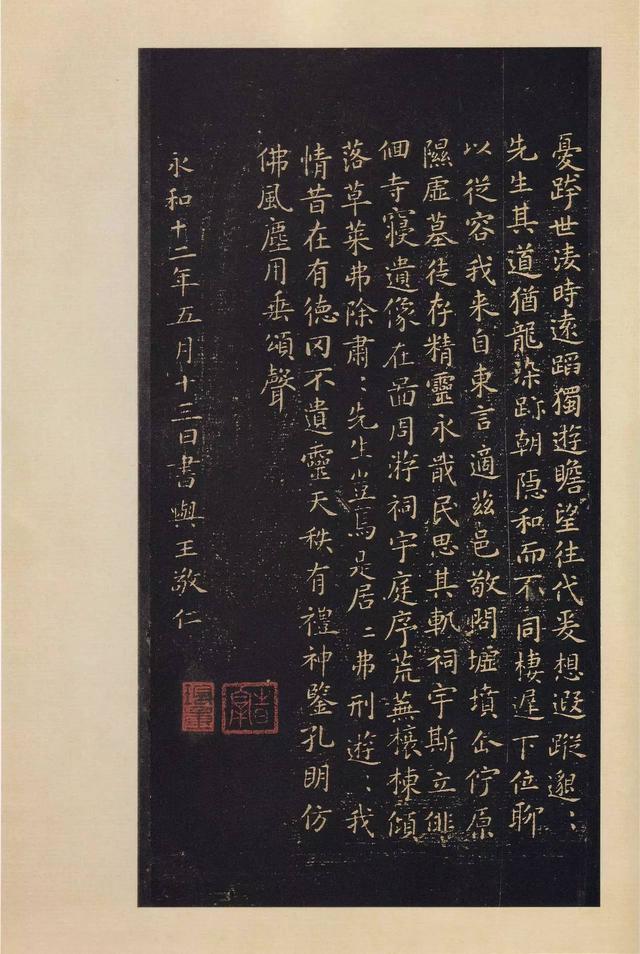 憂跨世淩時遠蹈獨遊瞻望往代爰想遐蹤邈〻
先生其道猶龍染跡朝隱和而不同棲遅下位聊
以従容我来自東言適茲邑敬問墟墳企佇原
隰虛墓徒存精靈永戢民思其軌祠宇斯立徘
佪寺寝遺像在啚周游祠宇庭序荒蕪榱棟傾
落草萊弗除肅〻先生豈焉是居〻弗刑遊〻我
情昔在有德罔不遺靈天秩有禮神鑒孔明仿
佛風塵用垂頌聲
永和十二年五月十三日書與王敬仁